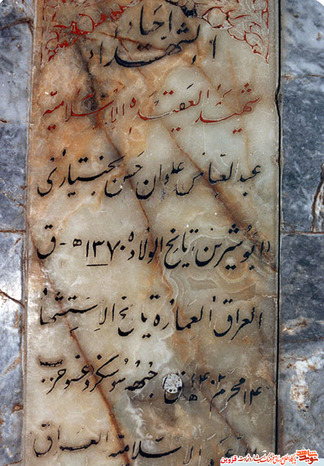 احیاء
الشهداء
شهید العقیدة الإسلامیة
عبد العباس علوان حسن بختیاری
(ابو شیرین) تاریخ الولادة ۱۳۷۰ هـ - ق
العراق العمارة تاریخ الاستشها
۱۴ محرم جبهه سوسنگرد
الاسلامیة العراق
قزوین